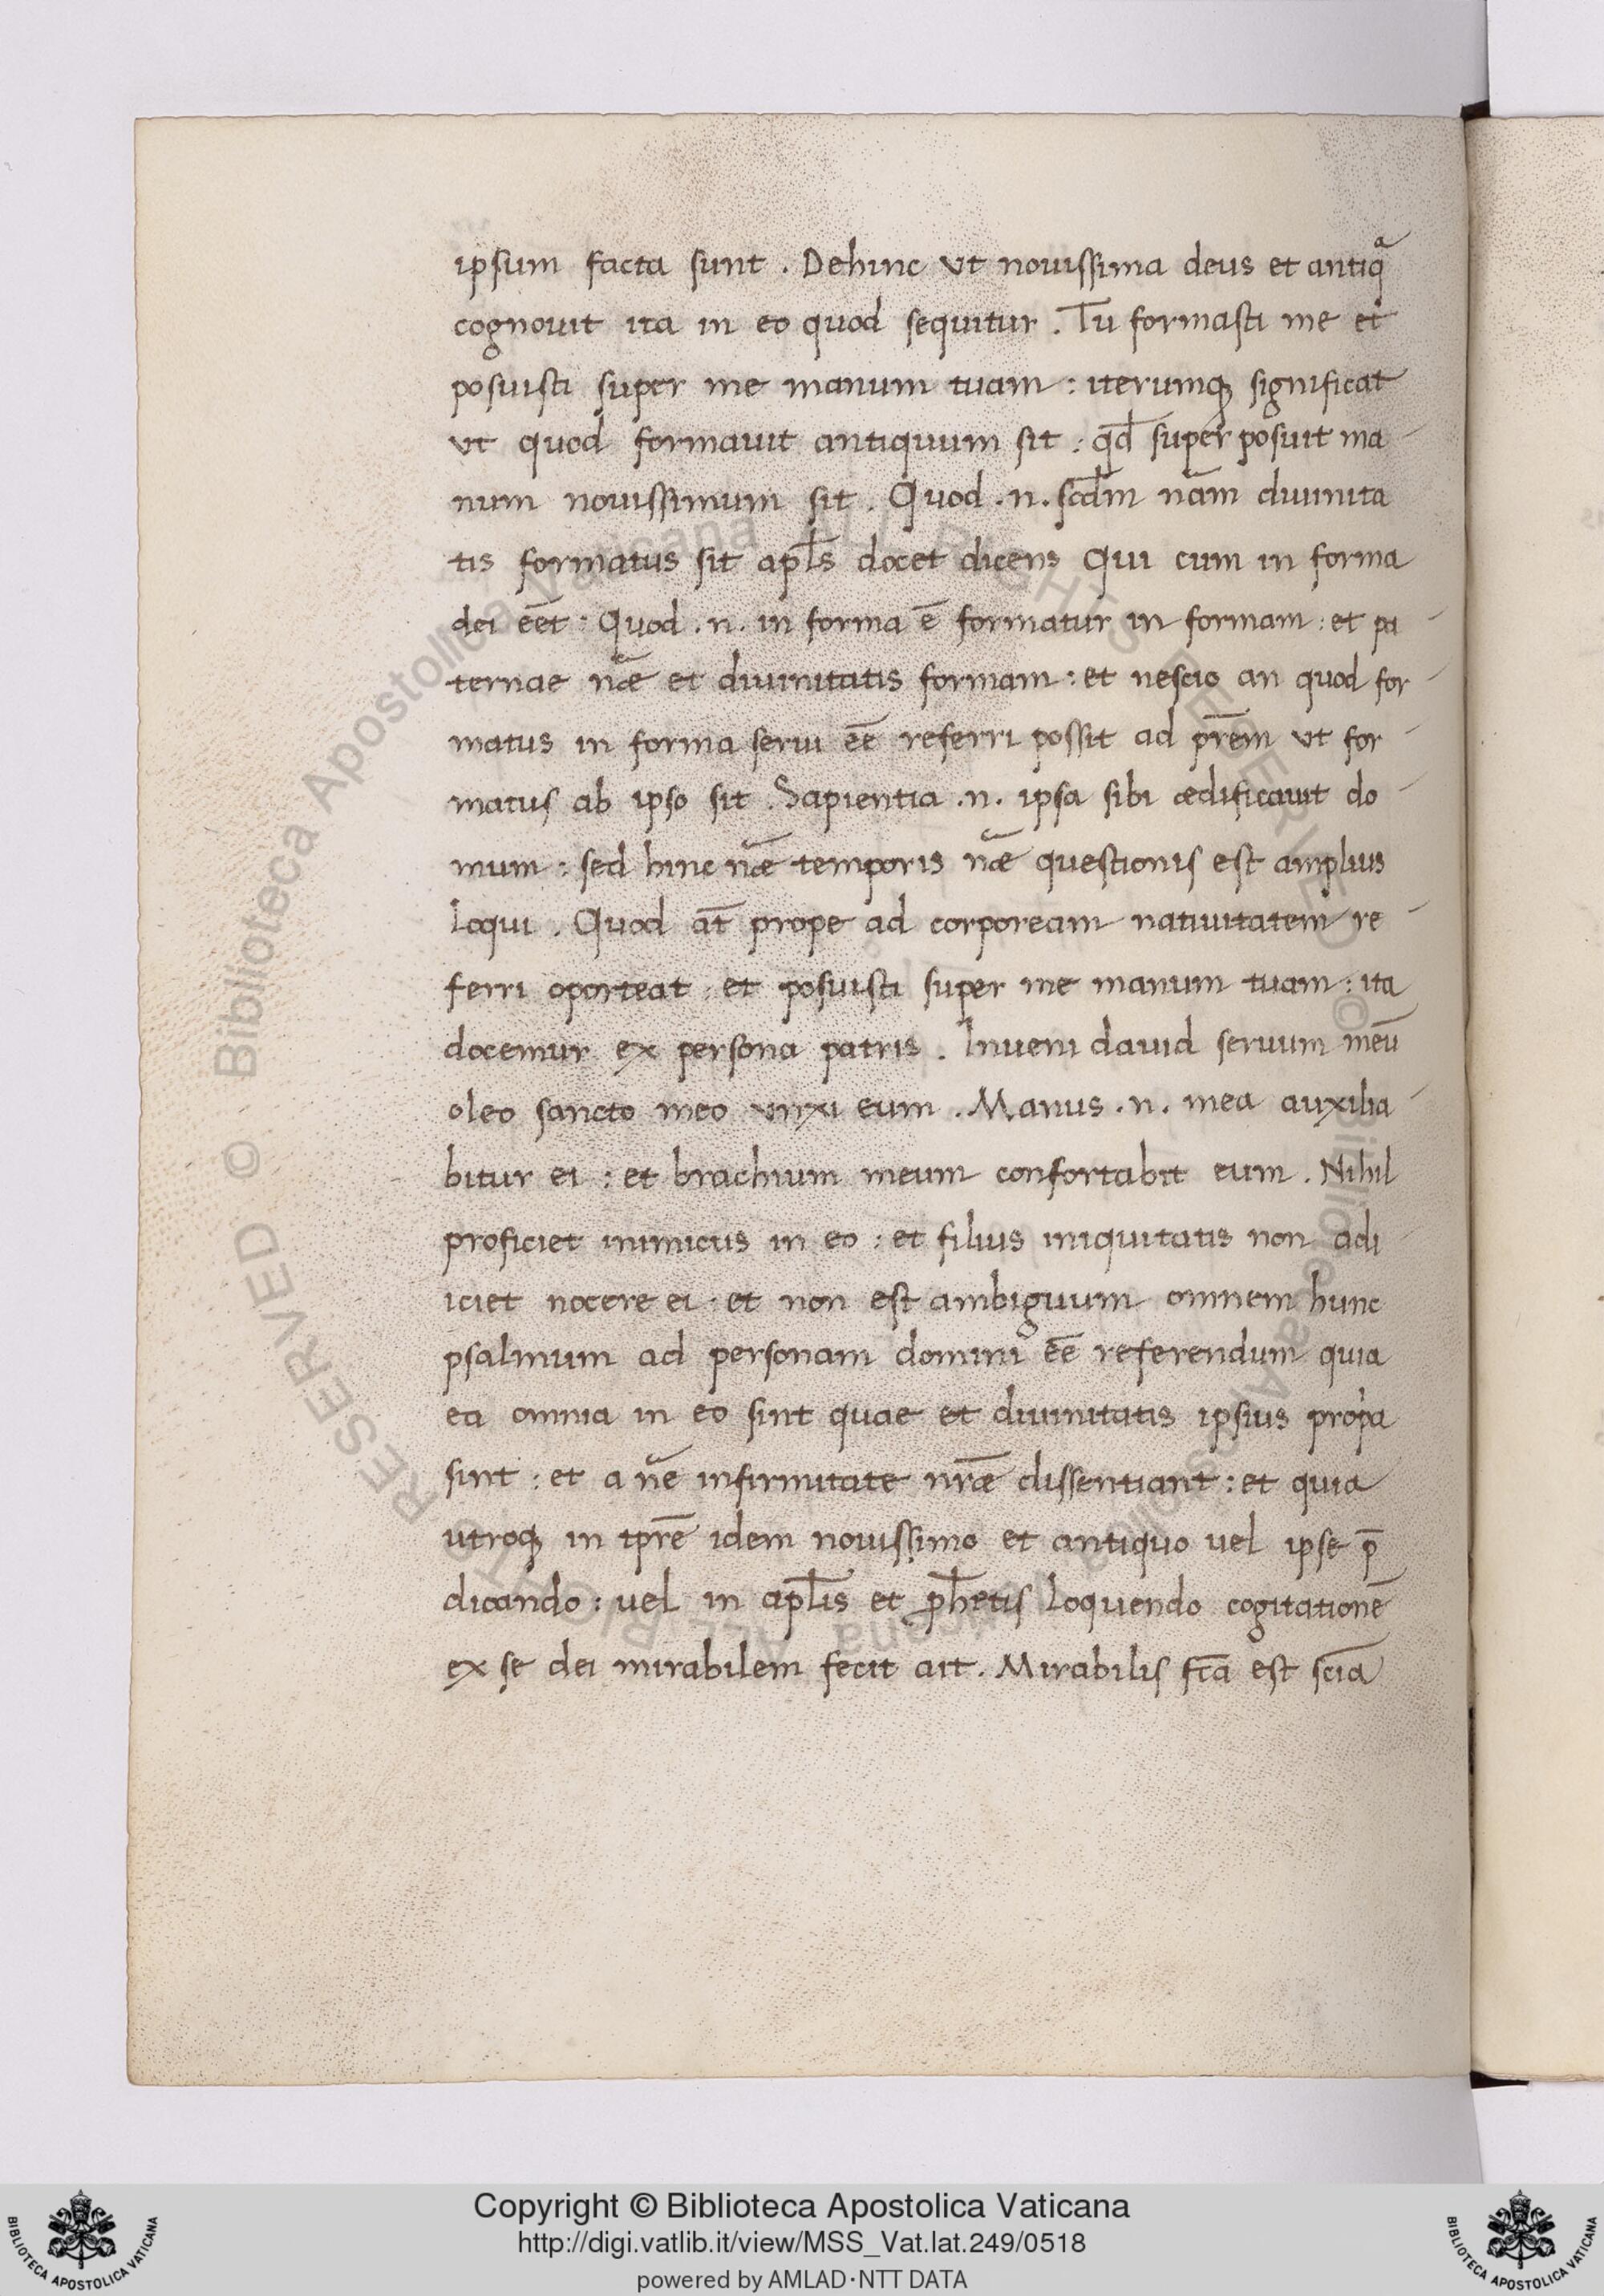 ipsum facta sunt . Dehinc ut nouissima deus et antiqͣ
cognouit ita in eo quod sequitur . Tu formasti me et
posuisti super me manum tuam : iterumqꝫ significat
ut quod formauit antiquum sit : qd̄ super posuit ma
num nouissimum sit . Quod .n. scd̄m nām diuinita
tis formatus sit apl̄s docet dicens Qui cum in forma
dei eēt : Quod .n. in forma ē formatur in formam : et pa
ternae nāe et diuinitatis formam : et nescio an quod for
matus in forma serui eē referri possit ad pr̄em ut for
matus ab ipso sit . Sapientia .n. ipsa sibi aedificauit do
mum : sed hinc nāe temporis nāe questionis est amplius
loqui . Quod at̄ prope ad corpoream natiuitatem re
ferri oporteat : et posuisti super me manum tuam : ita
docemur ex persona patris . Inueni dauid seruum meū
oleo sancto meo unxi eum . Manus .n. mea auxilia
bitur ei : et brachium meum confortabit eum . Nihil
proficiet inimicus in eo : et filius iniquitatis non adi
iciet nocere ei : et non est ambiguum omnem hunc
psalmum ad personam domini eē referendum quia
ea omnia in eo sint quae et diuinitatis ipsius propͥa
sint : et a nē infirmitate nr̄ae dissentiant : et quia
utroqꝫ in tpr̄e idem nouissimo et antiquo uel ipse p̄
dicando : uel in apl̄is et ꝓh̄etis loquendo cogitationē
ex se dei mirabilem fecit ait . Mirabilis fc̄a est sciā
Copyright © Biblioteca Apostolica Vaticana
http://digi.vatlib.it/view/MSS_Vat.lat.249/0518
powered by AMLAD·NTT DATA
BIBLIOTECA APOSTOLICA VATICANA
BIBLIOTECA APOSTOLICA VATICANA